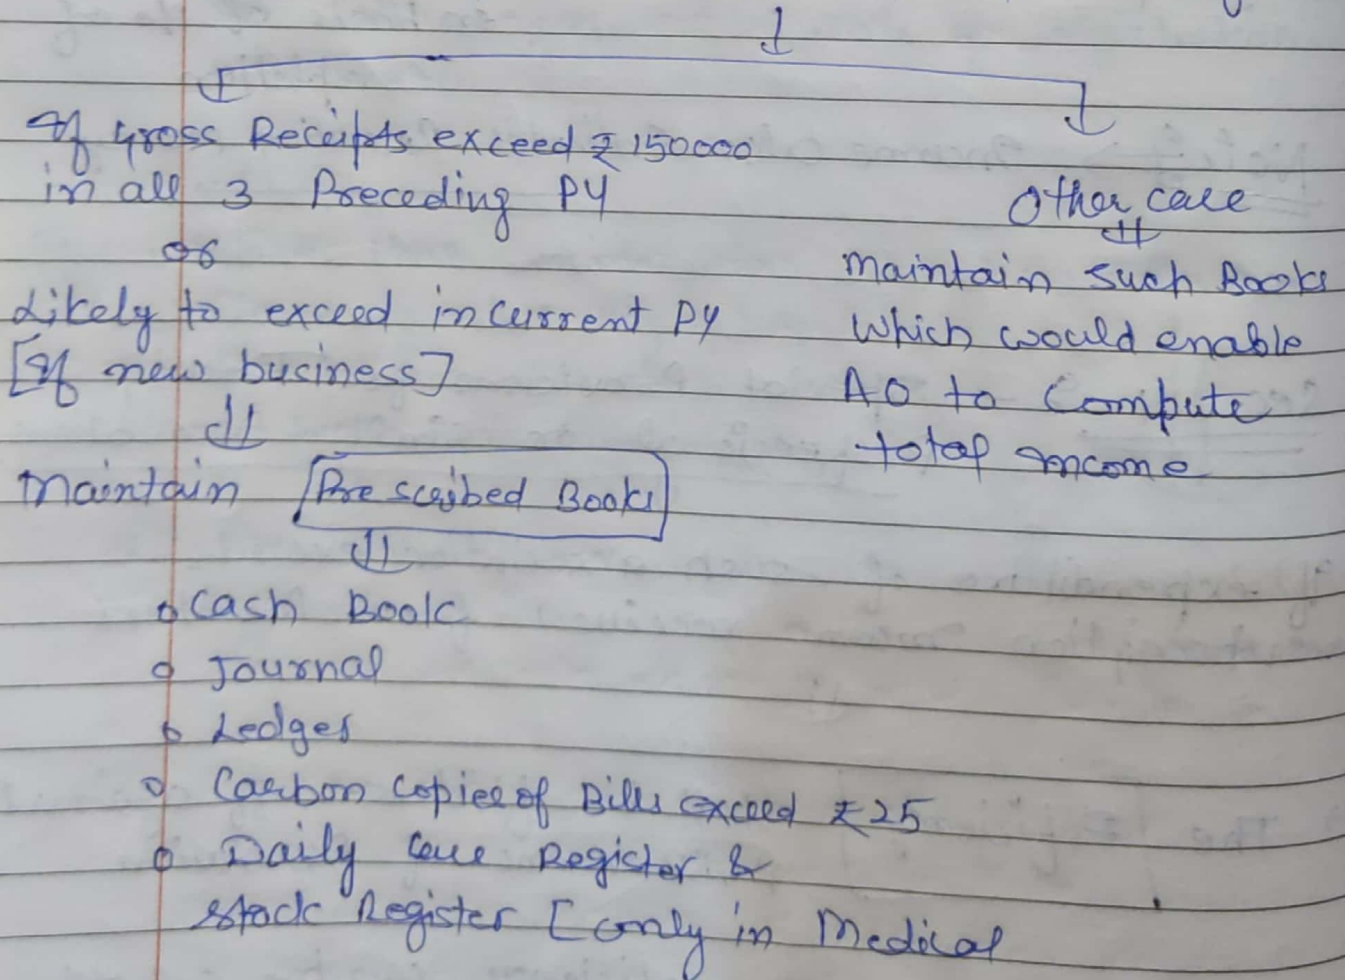 If Gross Receipts exceed ₹150000
in all 3 Preceding PY
or
Likely to exceed in current PY
[If new business]
Maintain Prescribed Books
o Cash Book
o Journal
o Ledger
o Carbon Copies of Bills exceed ₹25
o Daily Case Register &
Stock Register [only in Medical
Other case
Maintain such Books
which would enable
AO to Compute
total income